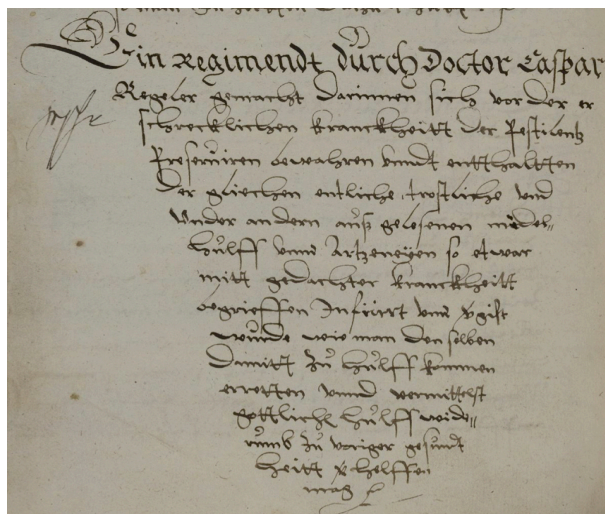 Ein Regimendt durch Doctor Caspar
Kegeler gemacht darinnen sich vor der er
schrecklichen kranckheitt der Pestilentz
Preserviren bewahren vnndt enthaltten
der gliechen entliche, trostliche vnd
vnder andern auß gelesenen
hůlff vnnd Artzeneÿen so etwar
mitt gedachter kranckheitt
begrieffen Inficirt vnd vgift
wůrde wie man denselben
damitt zů hůlff kommen
erretten vnnd vermittelst
gottliche hůlff wide=
rumb zů voriger gesundt
heitt helffen
mag